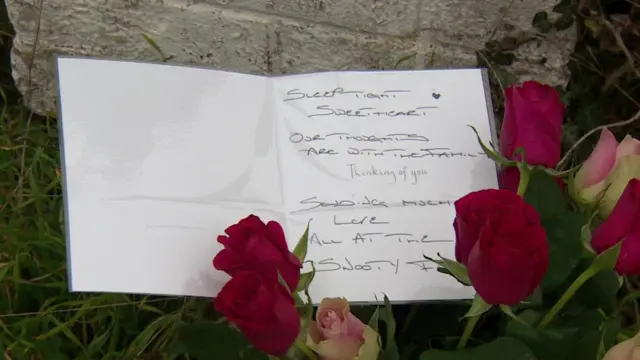 SLEEP TIGHT
SWEETHEART
OUR THOUGHTS
ARE WITH THE FAMILY
Thinking of you
SENDING MUCH
LOVE
ALL AT THE
SNOOTY F